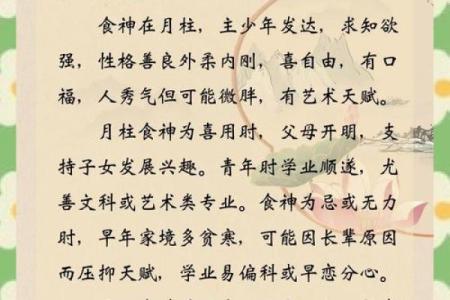 食神在月柱，主少年发达，求知欲
强，性格善良外柔内刚，喜自由，有口
福，人秀气但可能微胖，有艺术天赋。
月柱食神为喜用时，父母开明，支
持子女发展兴趣。青年时学业顺遂，尤
善文科或艺术类专业。食神为忌或无力
时，早年家境多贫寒，可能因长辈原因
而压抑天赋，学业易偏科或早恋分心。